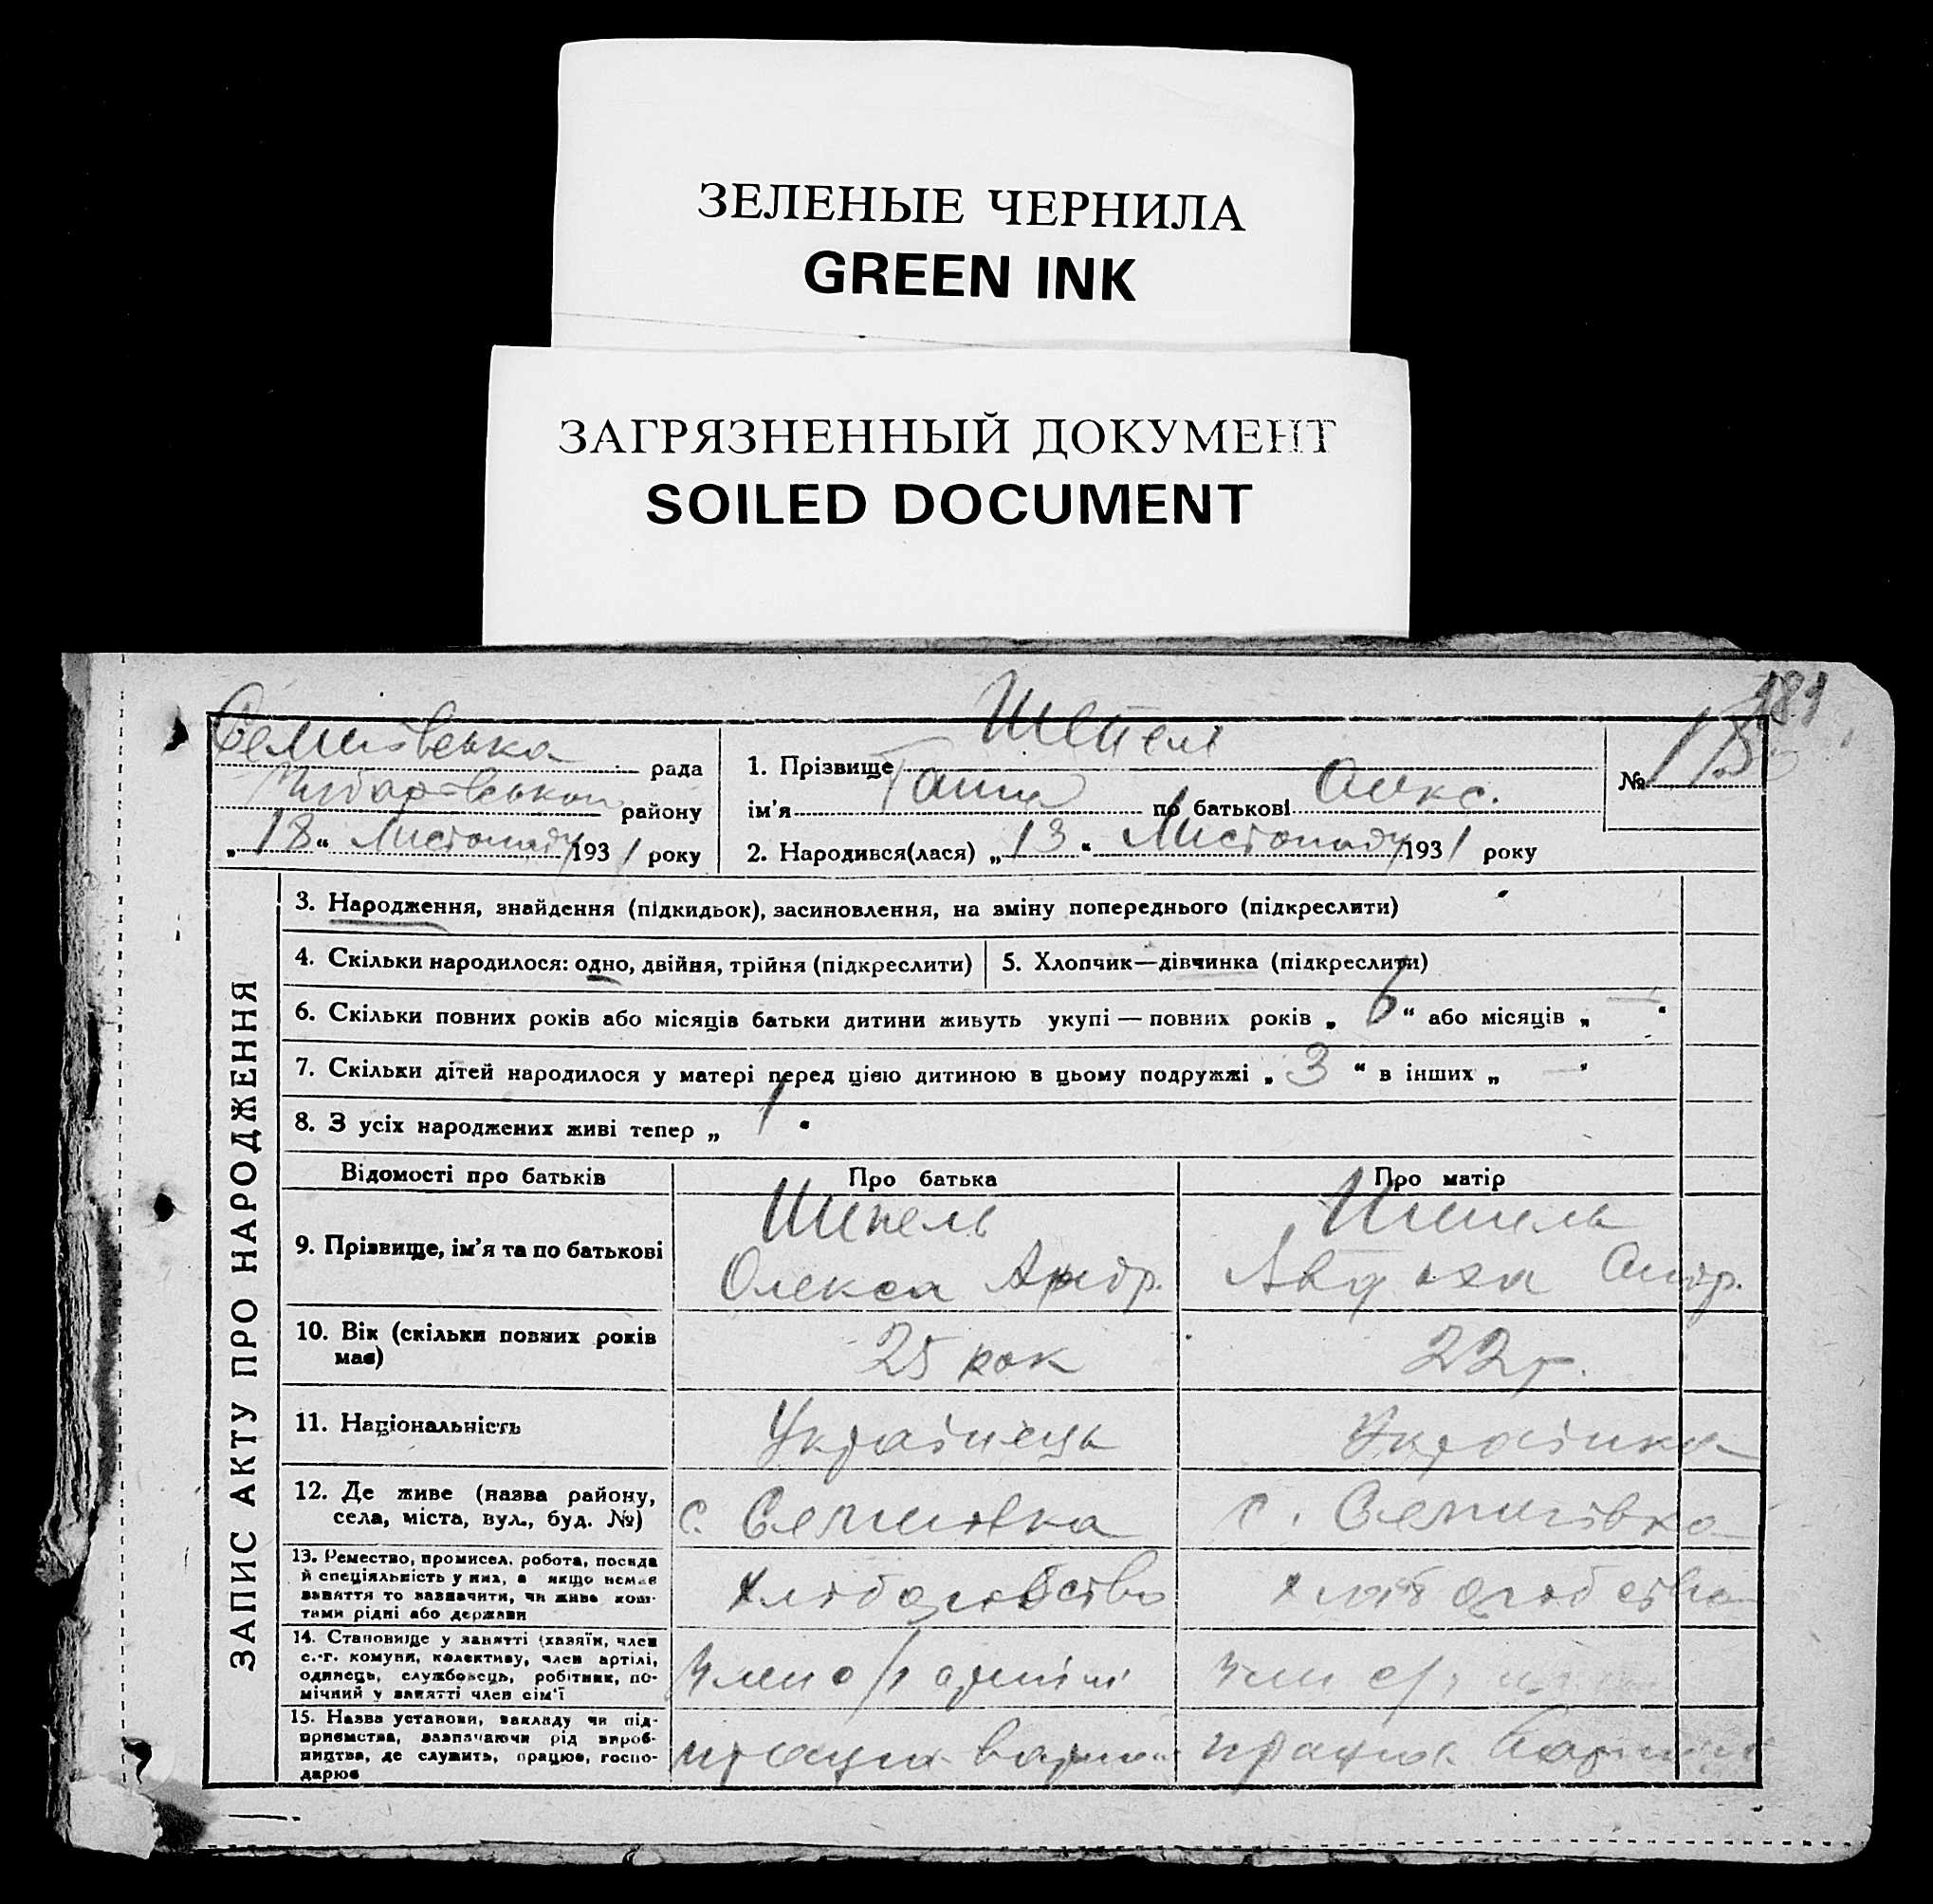 ЗЕЛЕНЫЕ ЧЕРНИЛА
GREEN INK
ЗАГРЯЗНЕННЫЙ ДОКУМЕНТ
SOILED DOCUMENT
181
рада
району
„18“ Листопаду 1931 року
1. Прізвище Шепель
ім’я Ганна по батькові Олекс.
№
2. Народився(лася) „13“ Листопаду 1931 року
ЗАПИС АКТУ ПРО НАРОДЖЕННЯ
3. Народження, знайдення (підкидьок), засиновлення, на зміну попереднього (підкреслити)
4. Скільки народилося: одно, двійня, трійня (підкреслити)
5. Хлопчик—дівчинка (підкреслити)
6. Скільки повних років або місяців батьки дитини живуть укупі — повних років „ 6 “ або місяців „ — “
7. Скільки дітей народилося у матері перед цією дитиною в цьому подружжі „ 3 “ в інших „ — “
8. З усіх народжених живі тепер „ 1 “
Відомості про батьків Про батька Про матір
9. Прізвище, ім’я та по батькові
Шепель
Олекса Андр.
Шепель
Андр.
10. Вік (скільки повних років має)
25 рок
22 р.
11. Національність
Українець
Українка
12. Де живе (назва району,
села, міста, вул., буд. №)
с. Семенівка
с. Семенівка
13. Ремество, промисел, робота, посада
й спеціяльність у них, а якщо немає
заняття то зазначити, чи живе кош-
тами рідні або держави
хліборобство
хліборобство
14. Становище у занятті (хазяїн, член
с.-г. комуни, колективу, член артілі,
одинець, службовець, робітник, по-
мічний у занятті член сім’ї
член с/г артілі
член с/г
15. Назва установи, закладу чи під-
приємства, зазначаючи рід вироб-
ництва, де служить, працює, госпо-
дарює